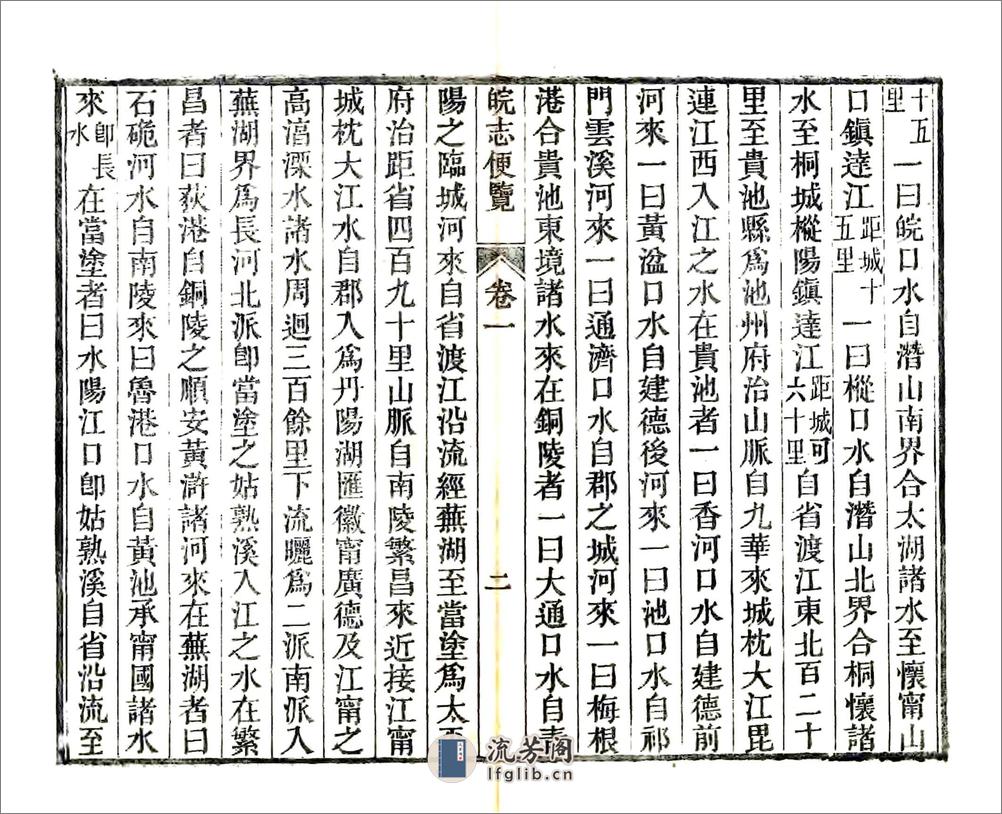 十五里一曰皖口水自潛山南界合太湖諸水至懷甯山
口鎮達江距城十五里一曰樅口水自潛山北界合桐懷諸
水至桐城樅陽鎮達江距城可六十里自省渡江東北百二十
里至貴池縣爲池州府治山脈自九華來城枕大江毘
連江西入江之水在貴池者一曰香河口水自建德前
河來一曰黃湓口水自建德後河來一曰池口水自祁
門雲溪河來一曰通濟口水自郡之城河來一曰梅根
港合貴池東境諸水來在銅陵者一曰大通口水自青
皖志便覽 卷一 二
陽之臨城河來自省渡江沿流經蕪湖至當塗爲太平
府治距省四百九十里山脈自南陵繁昌來近接江甯
城枕大江水自郡入爲丹陽湖匯徽甯廣德及江甯之
高淳溧水諸水周迴三百餘里下流曬爲二派南派入
蕪湖界爲長河北派卽當塗之姑孰溪入江之水在繁
昌者曰荻港自銅陵之順安黃滸諸河來在蕪湖者曰
石硊河水自南陵來曰魯港口水自黃池承甯國諸水
來卽長水在當塗者曰水陽江口卽姑孰溪自省沿流至
流芳阁
lfglib.cn